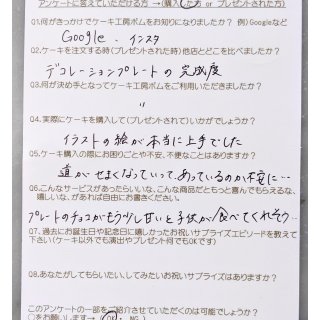 アンケートに答えていただける方→(購入した方 or プレゼントされた方)
Q1.何がきっかけでケーキ工房ボムをお知りになりましたか？ 例)Googleなど
Google、インスタ
Q2.ケーキを注文する時(プレゼントされた時)他店とどこを比べましたか？
デコレーションプレートの完成度
Q3.何が決め手となってケーキ工房ボムをご利用いただきましたか？
〃
Q4.実際にケーキを購入して(プレゼントされて)いかがでしょうか？
イラストの絵が本当に上手でした
Q5.ケーキ購入の際にお困りごとや不安、不便なことはありますか？
道がせまくなっていって、あっているのか不安に…
Q6.こんなサービスがあったらいいな、こんな商品だともっと喜んでもらえるな、
嬉しいな、があれば自由にお書きください。
プレートのチョコがもう少し甘いと子供が食べてくれそう…
Q7、過去にお誕生日や記念日に嬉しかったお祝いサプライズエピソードを教えて
下さい(ケーキ以外でも演出やプレゼント何でもOKです)
Q8、あなたがしてもらいたい、してみたいお祝いサプライズはありますか？
このアンケートの一部をご紹介させていただくのは可能でしょうか？
○をお願いします→ ( OK ・ NG )